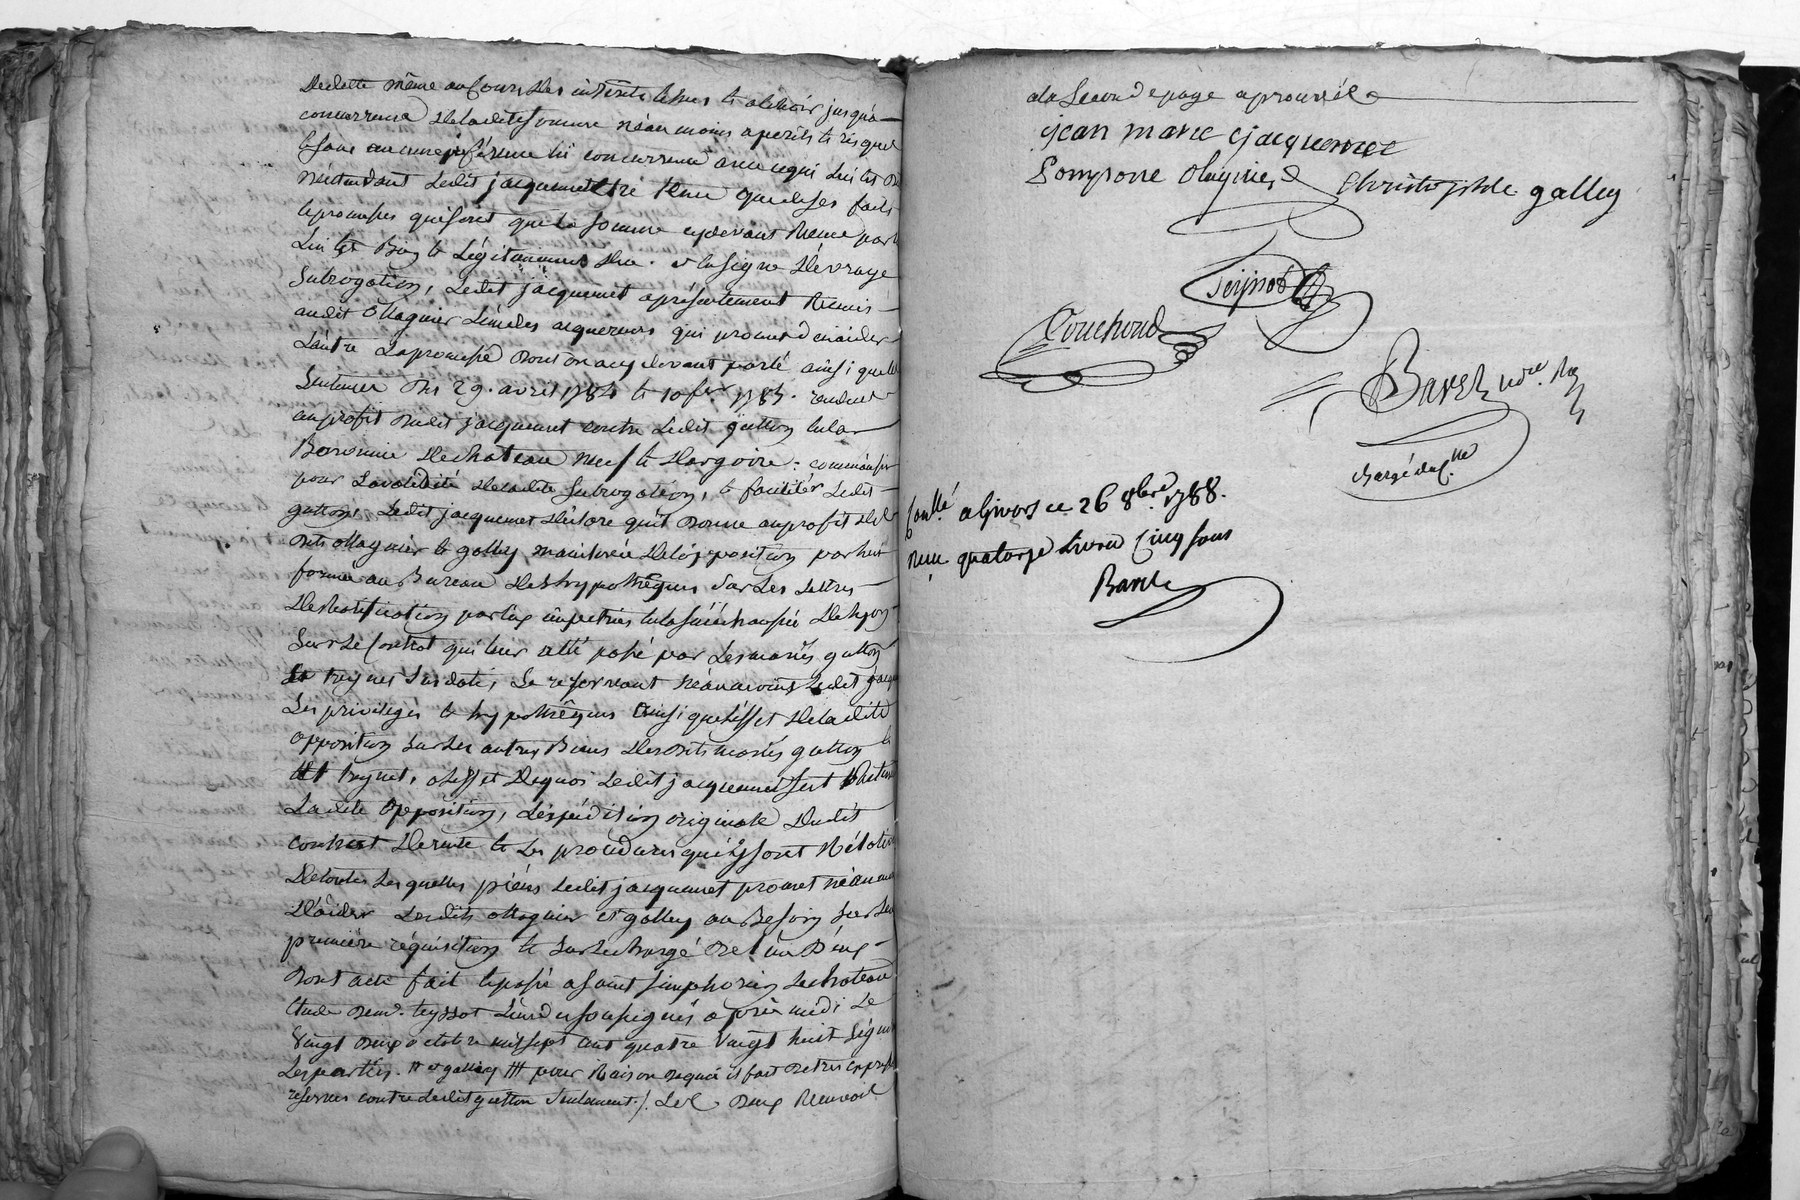 Dedette même au Cours des intérêts échus et à échoir jusqu'a
concurrence de ladite somme néanmoins a perils et risques
et sans aucune préférence ni concurrence avec ce qui lui est dû
n'entendant ledit jacquemet être tenu que de ses faits
et promesses qui sont que la somme cydevant remise par
Lui est Bien et Légitimement due. et en signe de vraye
Subrogation, Ledit jacquemet a présentement Remis
audit Ollagnier L'un des acquereurs qui promet d'en aider
L'autre La promesse dont on a cy devant parlé ainsi que les
Sentences des 29. avril 1784 et 10 fer 1785. rendues
au profit dudit jacquemet contre Ledit gutton en la
Baronnie de chateau neuf et dargoire: comme aussi
pour La validité de ladite Subrogation, et faciliter Ledit
gutton, Ledit jacquemet déclare qu'il donne au profit des
dits Ollagnier et galley, mainlevée de l'opposition par lui
formée au Bureau des hypothêques sur les Lettres
de Ratification par eux impetrées en la sénéchaussée de Lyon
Sur Le Contrat qui leur a été passé par Les mariés gutton
et treynet susdatté, Se reservant néanmoins Ledit jacq
Les privileges et hypothêques ainsi que l'effet de ladite
opposition sur Les autres Biens desdits mariés gutton
et treynet, a l'effet de quoi Ledit jacquemet
La dite opposition, L'expédition originale dudit
contrat de rente et Les procédures qui y sont Rélatives
de toutes Lesquelles pièces Ledit jacquemet promet néanmoins
d'aider Lesdits Ollagnier et galley au Besoin sur Leur
première réquisition et sur Le chargé de l'un d'eux
dont acte fait et passé a saint simphorien Le chateau
Etude de me. teyssot L'un des soussignés après midi Le
Vingt deux octobre mil sept cent quatre Vingt huit signé
Les parties. # et galley ### pour Raison dequoi il fait de très expresses
réserves contre Ledit gutton Seulement /. Les deux Renvois
a la Seconde page aprouvés
jean marie jacquemet
Pompone Olagnier Christophle galley
Teyssot
Couchoud
Baret ndre. Ro
chargé de la mte
Contlé. a Givors ce 26 8bre. 1788.
Reçu quatorze Livres Cinq sous
Baret